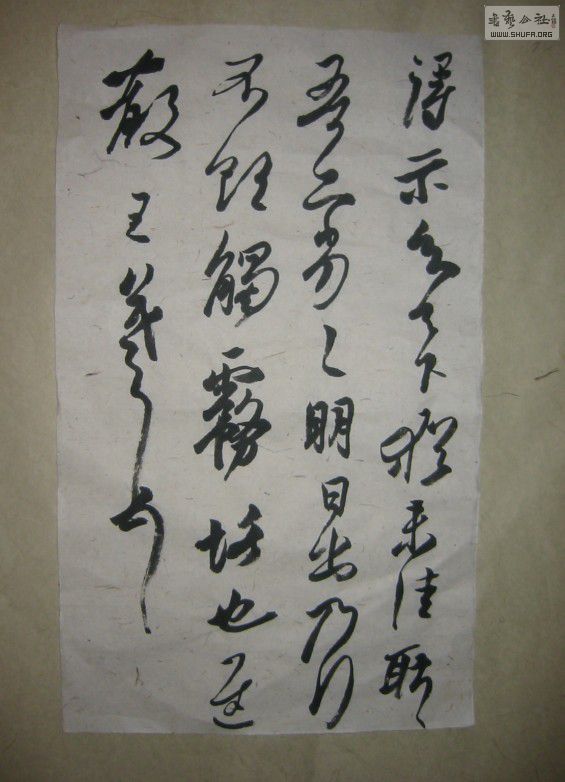 得示知足下猶未佳耿〻
吾亦劣〻明日出乃行
不欲觸霧故也遲
散王羲之頓首
WWW.SHUFA.ORG